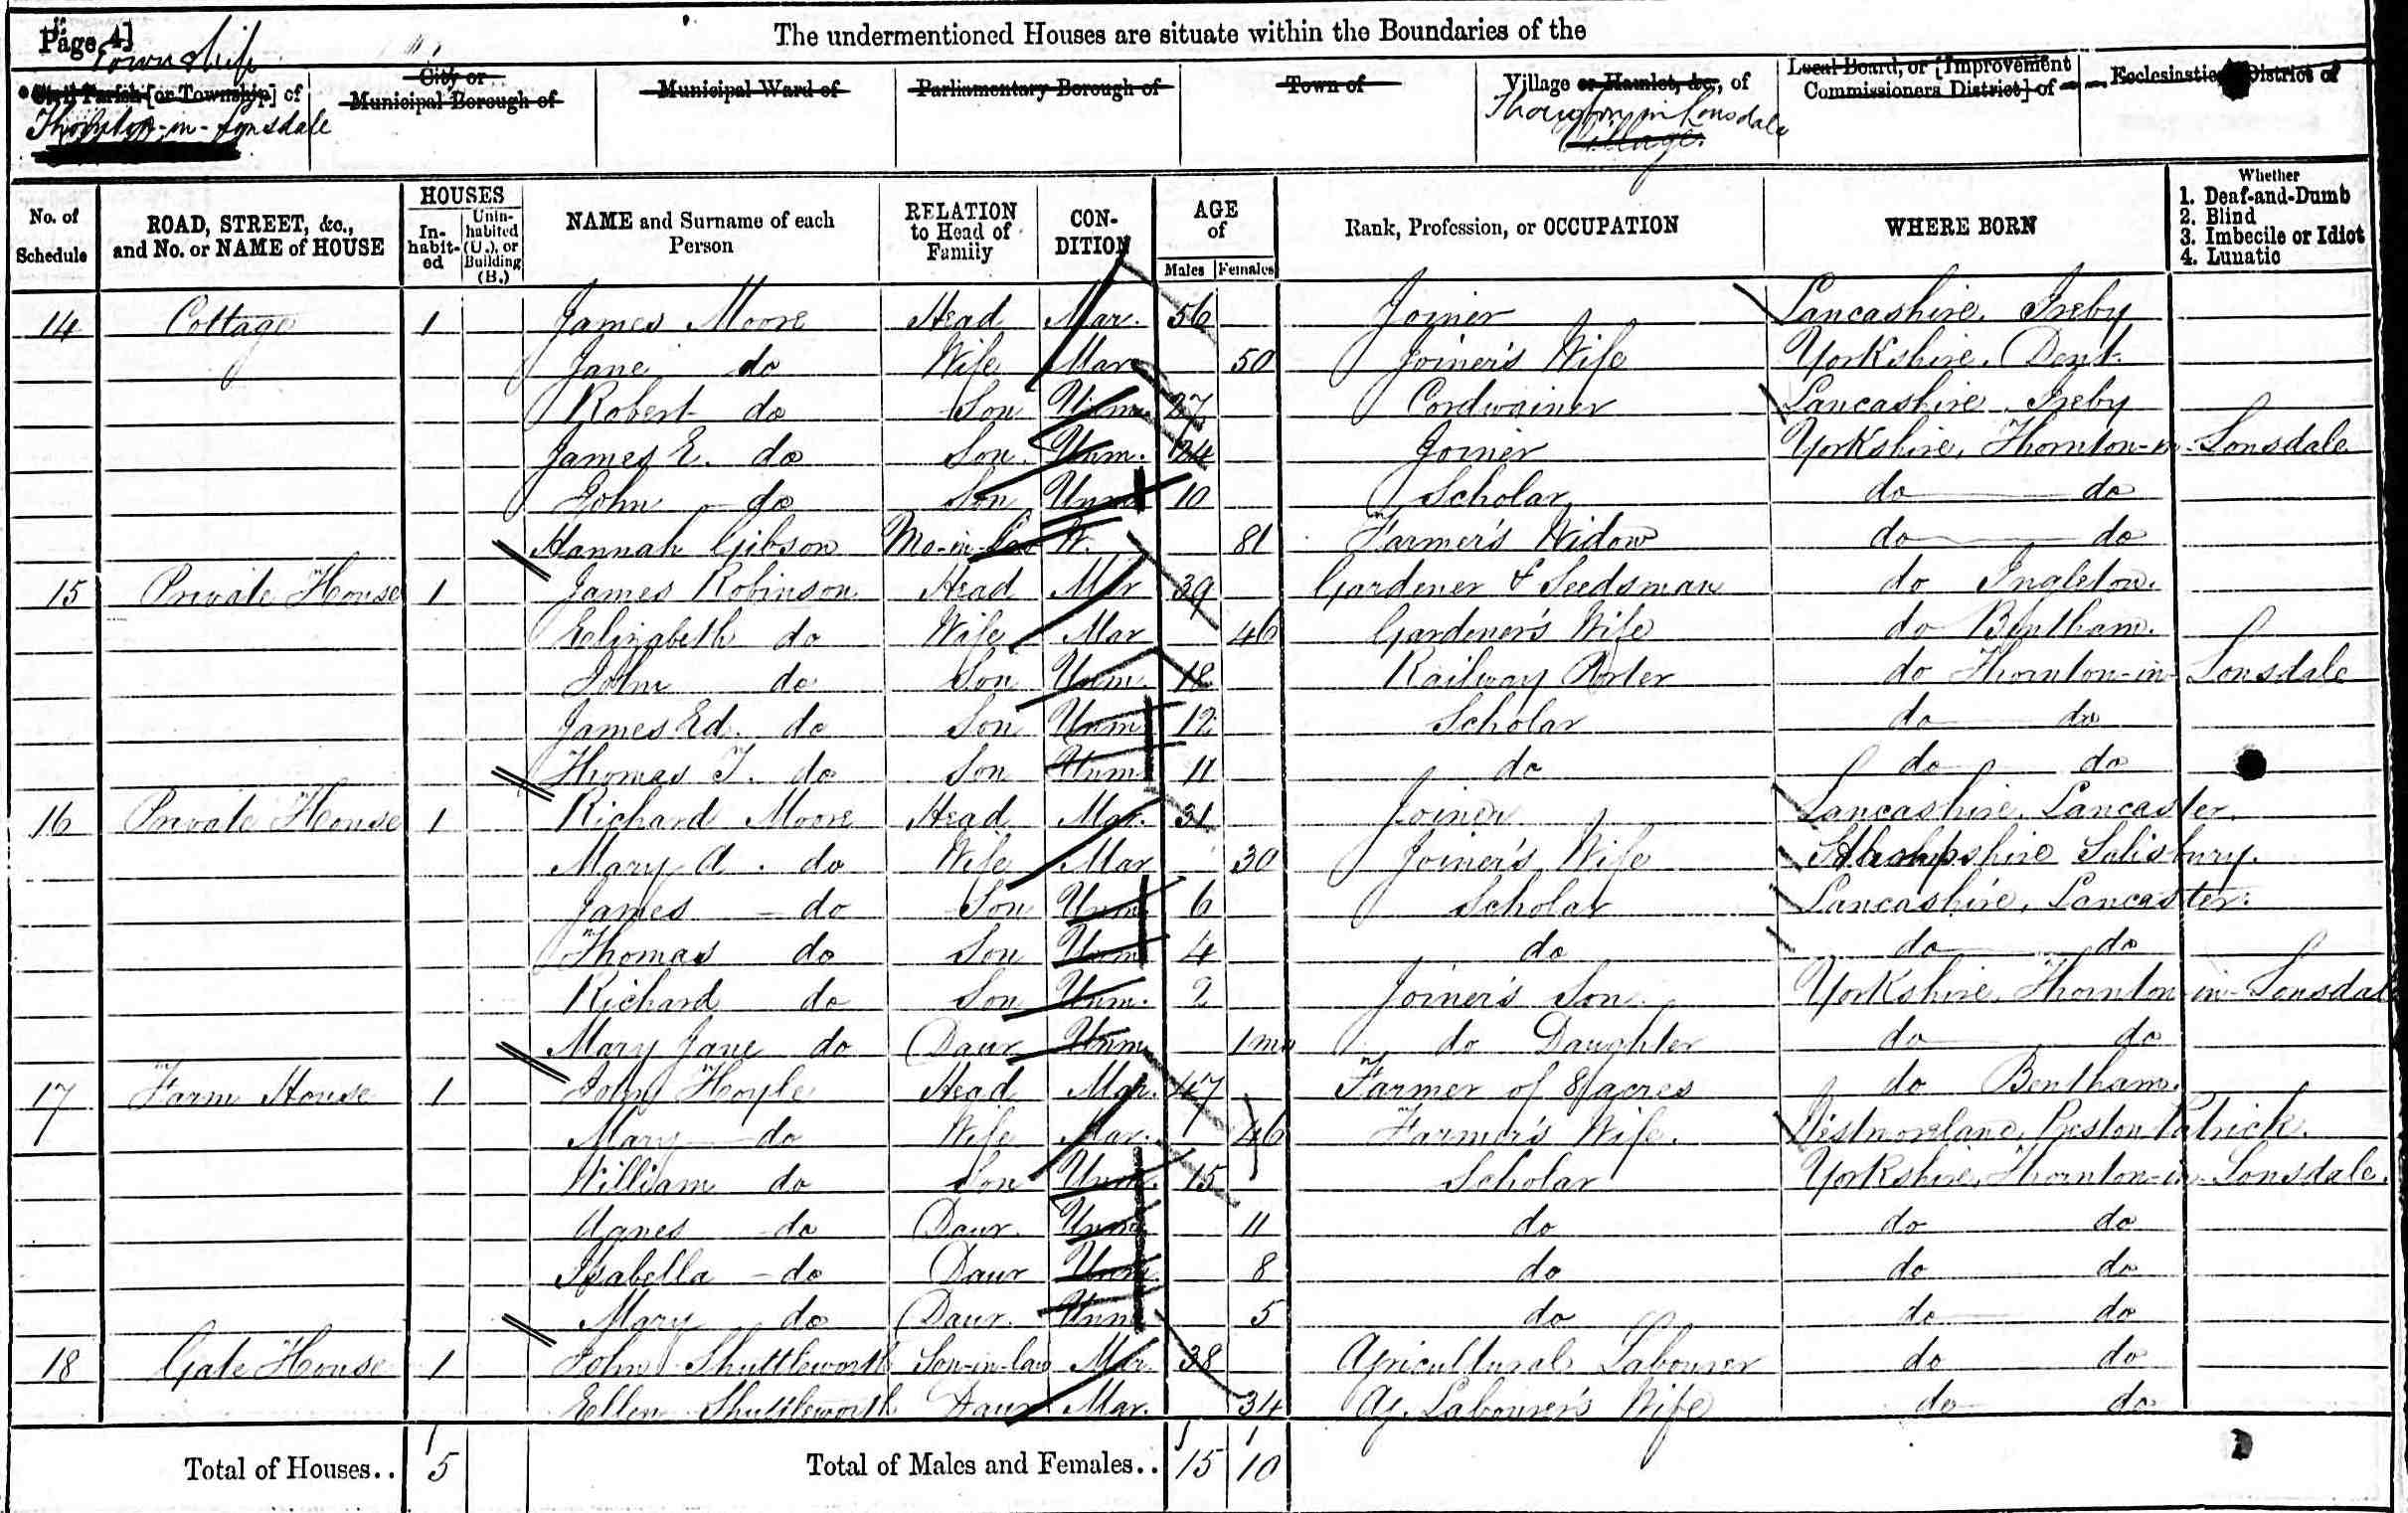 Page 4]
The undermentioned Houses are situate within the Boundaries of the
Township
Civil Parish [or Township] of
City or Municipal Borough of
Municipal Ward of
Parliamentary Borough of
Town of
Village or Hamlet, &c., of
Local Board, or [Improvement Commissioners District] of
Ecclesiastical District of
Thornton-in-Lonsdale
Thornton in Lonsdale
Village
No. of Schedule
ROAD, STREET, &c., and No. or NAME of HOUSE
HOUSES
In-habit-ed
Unin-habited (U.), or Building (B.)
NAME and Surname of each Person
RELATION to Head of Family
CON-DITION
AGE of
Males
Females
Rank, Profession, or OCCUPATION
WHERE BORN
Whether
1. Deaf-and-Dumb
2. Blind
3. Imbecile or Idiot
4. Lunatic
14 Cottage 1 James Moore Head Mar. 56 Joiner Lancashire, Ireby
Jane do Wife Mar 50 Joiner's Wife Yorkshire, Dent
Robert do Son Unm. 27 Cordwainer Lancashire, Ireby
James E. do Son Unm. 24 Joiner Yorkshire, Thornton-in-Lonsdale
John do Son Unm 10 Scholar do do
Hannah Gibson Mo-in-law W. 81 Farmer's Widow do do
15 Private House 1 James Robinson Head Mar 39 Gardener & Seedsman do Ingleton.
Elizabeth do Wife Mar 46 Gardener's Wife do Bentham.
John do Son Unm 18 Railway Porter do Thornton-in-Lonsdale
James Ed. do Son Unm 12 Scholar do do
Thomas T. do Son Unm 11 do do do
16 Private House 1 Richard Moore Head Mar. 31 Joiner Lancashire, Lancaster.
Mary A. do Wife Mar 30 Joiner's Wife Salisbury.
James do Son Unm 6 Scholar Lancashire, Lancaster.
Thomas do Son Unm 4 do do do
Richard do Son Unm. 2 Joiner's Son Yorkshire, Thornton-in-Lonsdale
Mary Jane do Daur Unm 1 mo do Daughter do do
17 Farm House 1 John Hoyle Head Mar. 47 Farmer of 8 acres do Bentham.
Mary do Wife Mar. 46 Farmer's Wife. Westmorland, Preston Patrick.
William do Son Unm. 15 Scholar Yorkshire, Thornton-in-Lonsdale.
Agnes do Daur. Unm 11 do do do
Isabella do Daur Unm 8 do do do
Mary do Daur. Unm 5 do do do
18 Gate House 1 John Shuttleworth Son-in-law Mar. 38 Agricultural Labourer do do
Ellen Shuttleworth Daur Mar. 34 Ag. Labourer's Wife do do
Total of Houses.. 5 Total of Males and Females.. 15 10